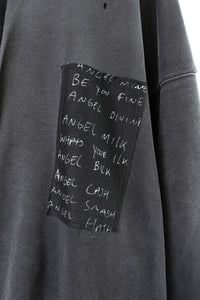 ANGEL MINE
BE YOU FINE
ANGEL DIVINE
ANGEL MILK
WHATS YOUR ILK
ANGEL BILK
ANGEL CASH
ANGEL SMASH
ANGEL HASH